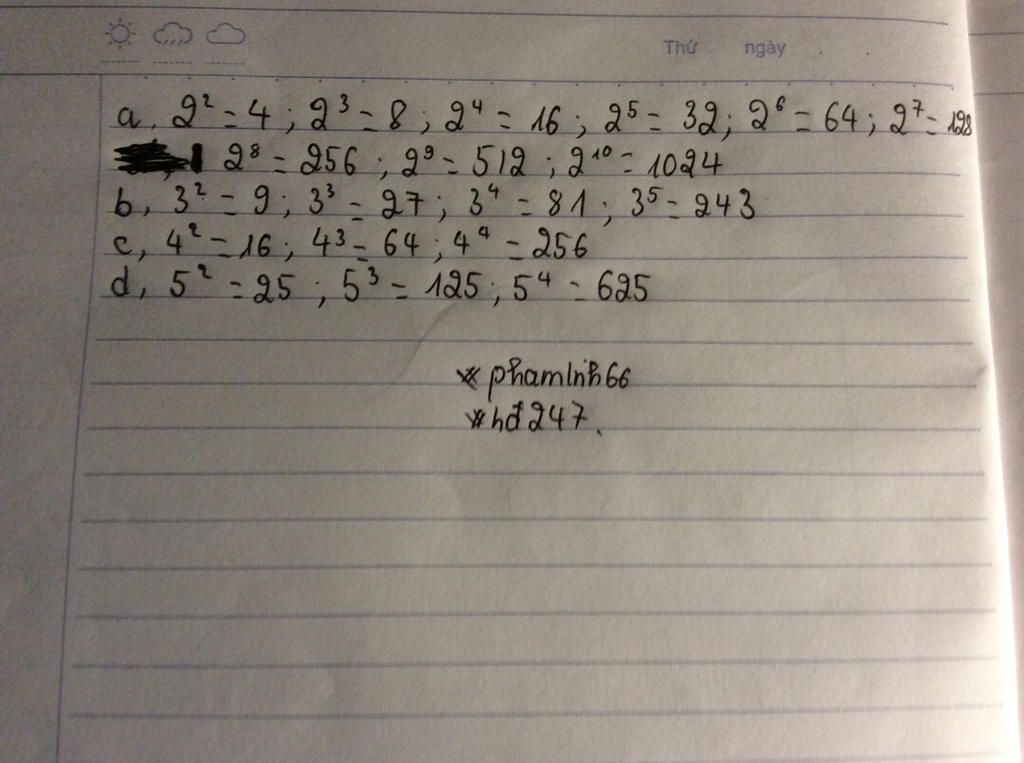 Thứ ngày
a, 2² = 4 ; 2³ = 8 ; 2⁴ = 16 ; 2⁵ = 32 ; 2⁶ = 64 ; 2⁷ = 128
2⁸ = 256 ; 2⁹ = 512 ; 2¹⁰ = 1024
b, 3² = 9 ; 3³ = 27 ; 3⁴ = 81 ; 3⁵ = 243
c, 4² = 16 ; 4³ = 64 ; 4⁴ = 256
d, 5² = 25 ; 5³ = 125 ; 5⁴ = 625
* phamlnh66
* hđ247.